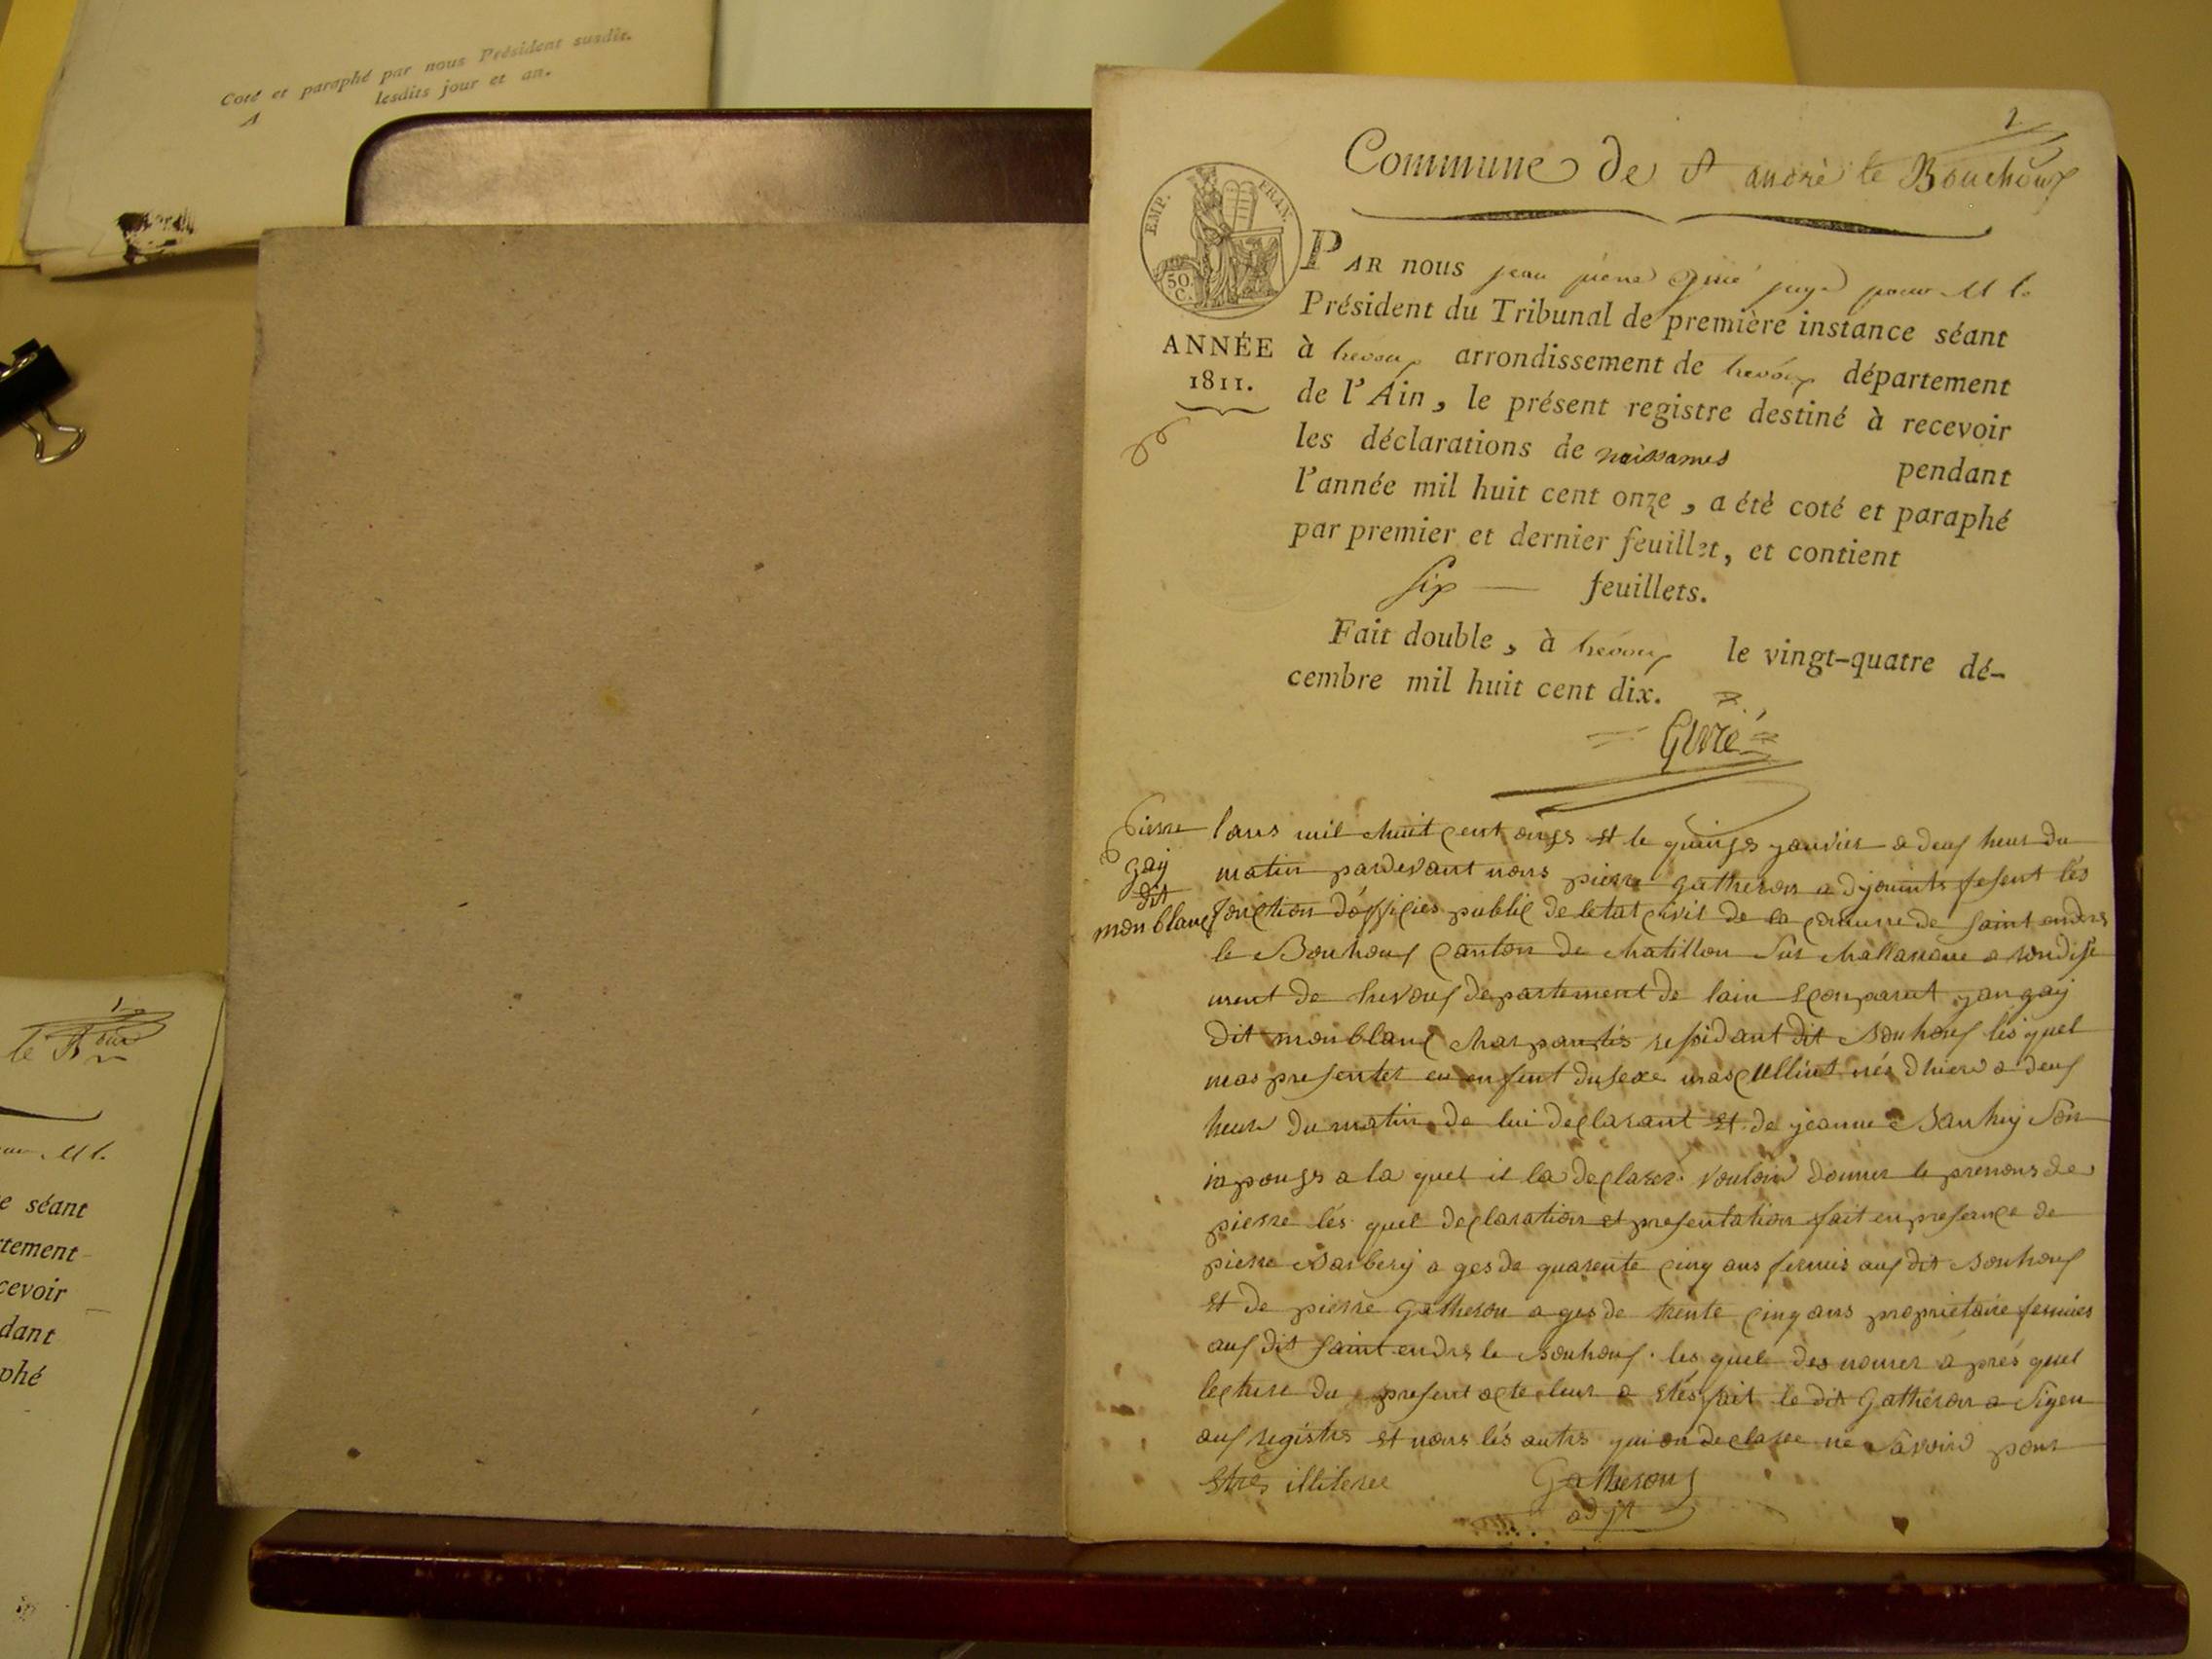 Coté et paraphé par nous Président susdit.
lesdits jour et an.
1
Commune de St andré le Bouchoux
EMP. FRAN.
50 C.
PAR nous jean pierre Givré juge pour M le
Président du Tribunal de première instance séant
ANNÉE
1811.
à trevoux arrondissement de trevoux département
de l'Ain, le présent registre destiné à recevoir
les déclarations de naissances pendant
l'année mil huit cent onze, a été coté et paraphé
par premier et dernier feuillet, et contient
six — feuillets.
Fait double, à trevoux le vingt-quatre dé-
cembre mil huit cent dix.
Givré
pierre
gay
dit
monblanc
lans mil huit cent onze et le quinze janvier a deux heur du
matin pardevant nous pierre gatheron adjouint fesent les
fonction dofficier public de letat civil de la comune de saint andre
le Bouhoux canton de chatillon sur challarone arondise
ment de trevoux departement de lain Sconparut jan gay
dit monblanc charpantier residant dit Bouhoux les quel
mas presenter eu enfent du sexe masqullint nés dhiere a deux
heur du matin de lui declarant et de jeanne
son
inpouse a la quel il la declarer vouloir donner le prenons de
pierre les quel declaration et presentation fait en presance de
pierre Barbery ages de quarente cinq ans fermier aux dit Bouhoux
et de pierre Gatheron ages de trente cinq ans proprietaire fermier
aux dit saint endre le Bouhoux les quel des nomer a pres quel
lecture du present acte leur a etes fait le dit Gatheron a signe
aux registre et nous les autre qui on declaree ne savoir pour
etres illiteree
Gatheron
adjt
le
M l.
e séant
tement
cevoir
dant
phé